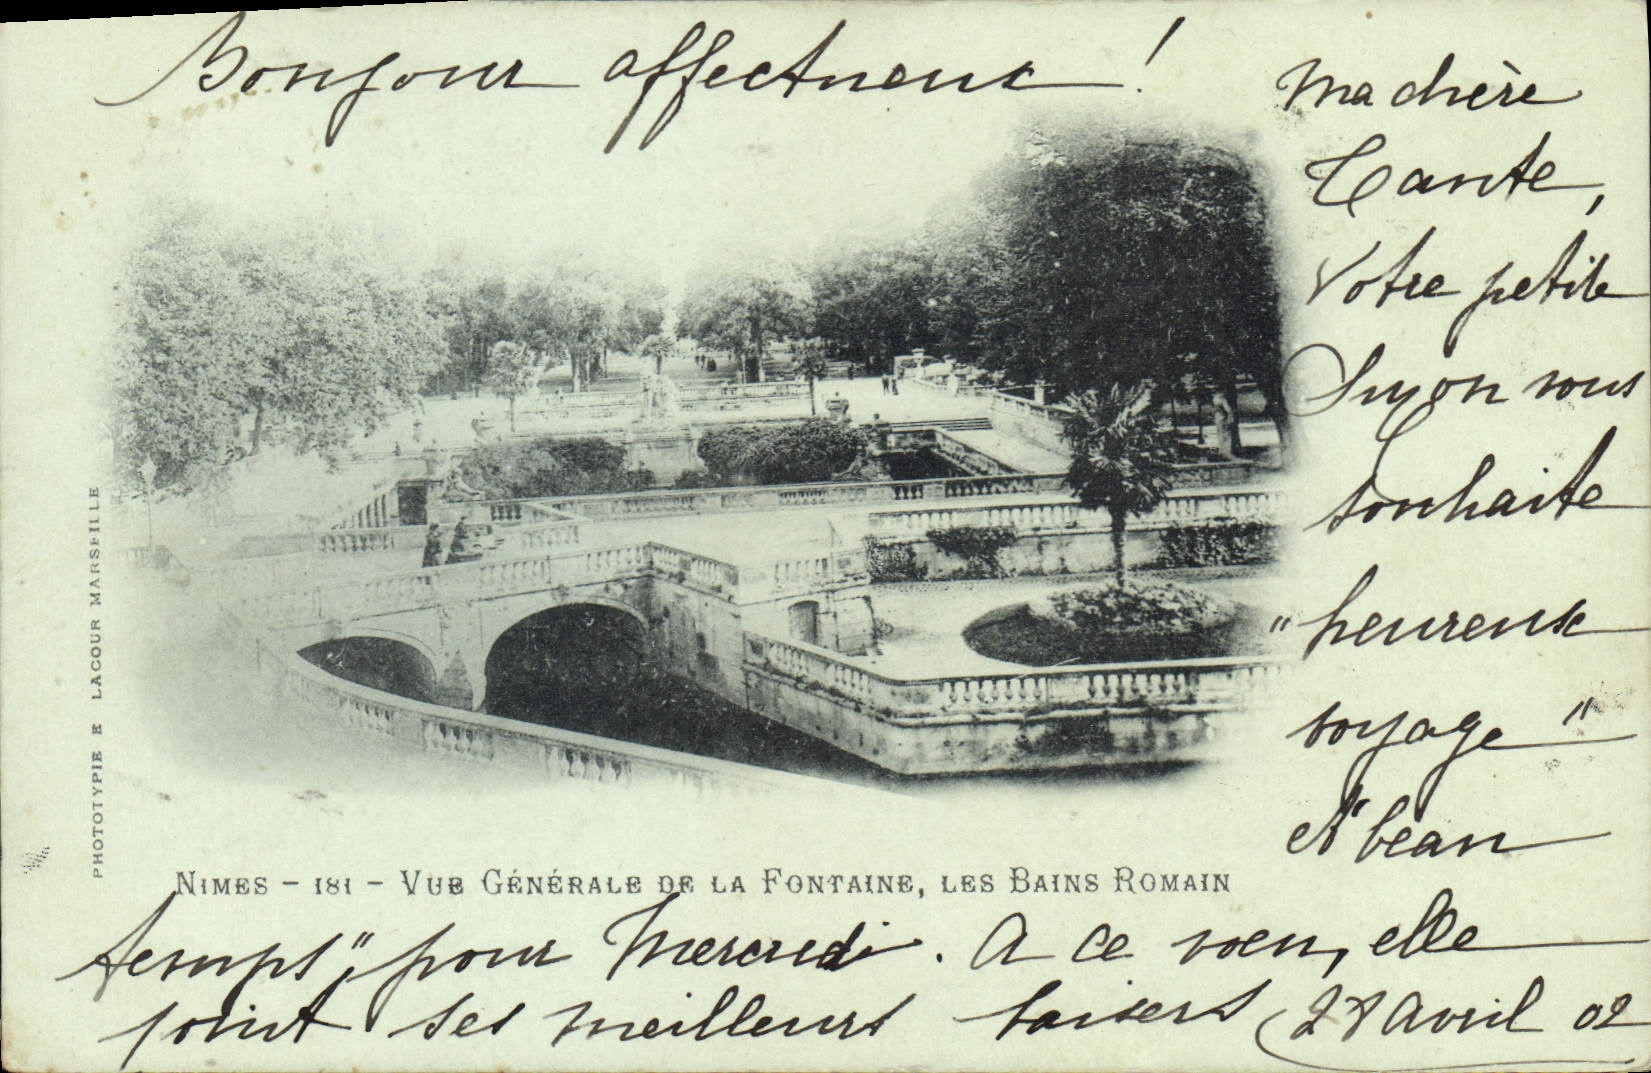 Bonjour affectueux !
Ma chère
Tante,
Votre petite
vous
souhaite
"heureux
voyage"
et "beau
temps", pour Mercredi. A ce voeu, elle
joint ses meilleurs baisers
Avril 02
NIMES - 181 - VUE GÉNÉRALE DE LA FONTAINE, LES BAINS ROMAIN
PHOTOTYPIE E LACOUR MARSEILLE